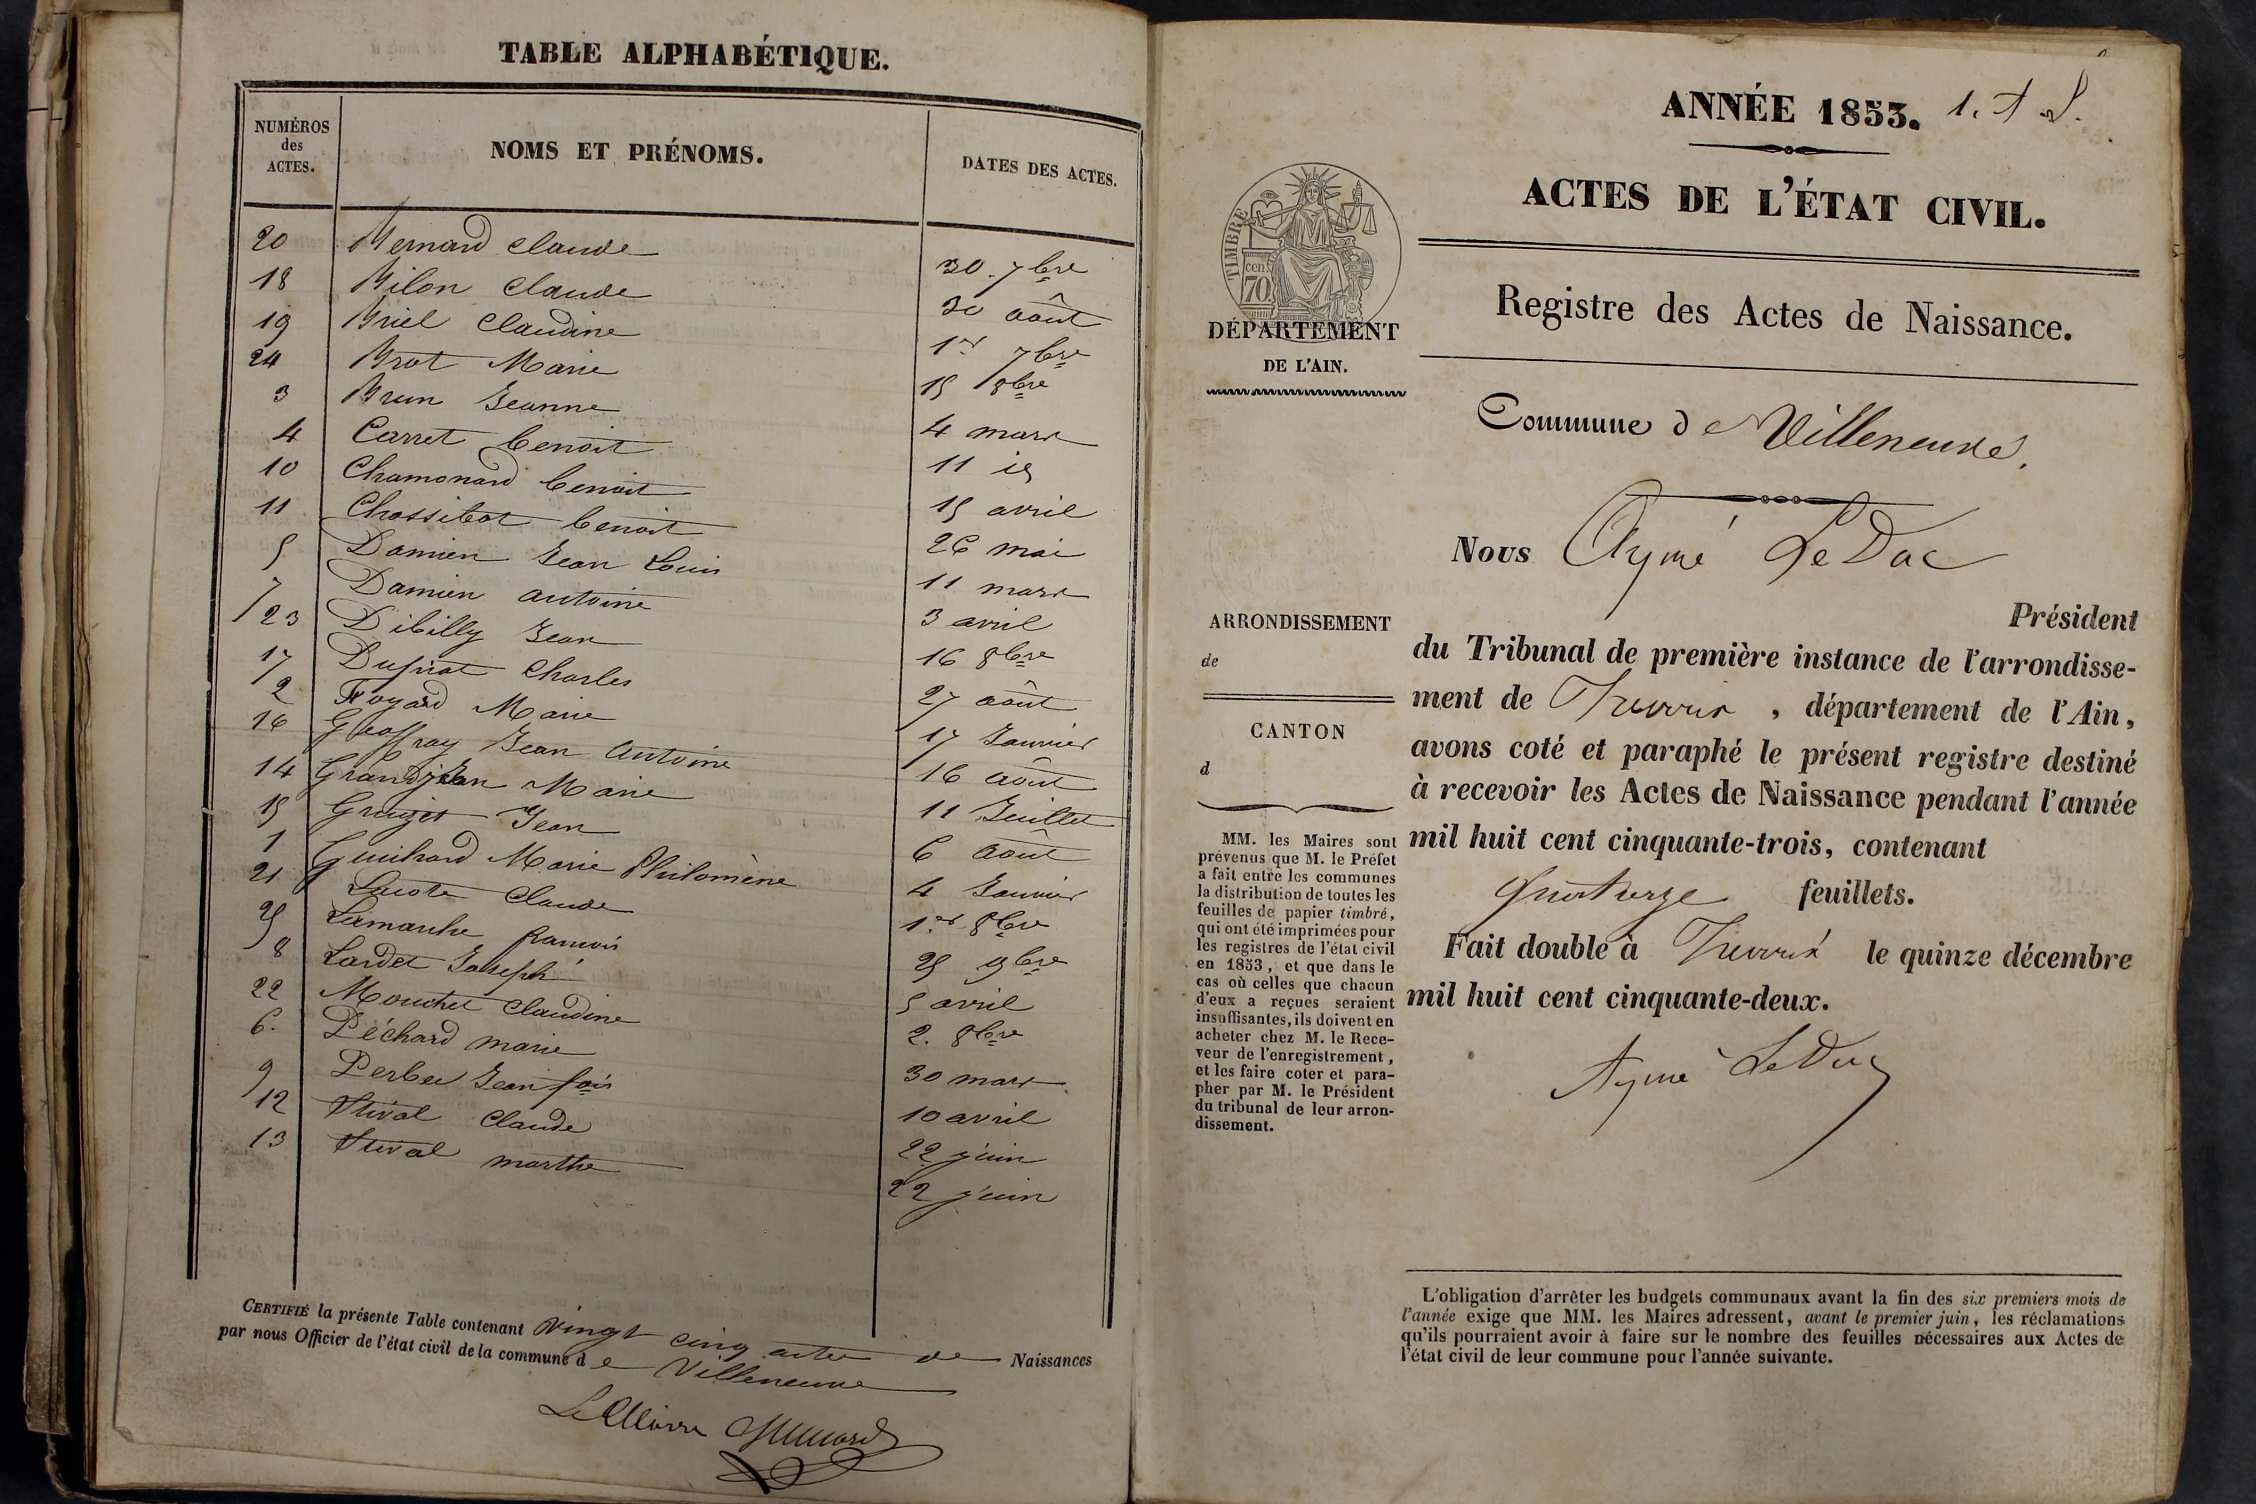 TABLE ALPHABÉTIQUE.
NUMÉROS
des
ACTES.
NOMS ET PRÉNOMS.
DATES DES ACTES.
20 Bernard Claude 30. 7bre
18 Bilon Claude 30 août
19 Briel Claudine 1er 7bre
24 Brot Marie 15 8bre
3 Brun Jeanne 4 mars
4 Carret benoit 11 id
10 Chamonard benoit 15 avril
11 benoit 26 mai
5 Damien Jean Louis 11 mars
7 Damien antoine 3 avril
23 Dibilly Jean 16 8bre
17 Charles 27 août
2 Foyard Marie 17 Janvier
16 Geoffray Jean antoine 16 août
14 Grandjean Marie 11 Juillet
15 Jean 6 août
1 Guichard Marie Philomène 4 Janvier
21 Lacote Claude 1er 8bre
25 Lamarche françois 25 9bre
8 Lardet Joseph 5 avril
22 Mouchet Claudine 2. 8bre
6. Péchard marie 30 mars
9 Jean fois 10 avril
12 Claude 22 juin
13 marthe 22 juin
CERTIFIÉ la présente Table contenant vingt cinq actes de Naissances
par nous Officier de l'état civil de la commune de Villeneuve
Le Maire
ANNÉE 1853. 1.
ACTES DE L'ÉTAT CIVIL.
TIMBRE
cen.
70
DÉPARTEMENT
DE L'AIN.
Registre des Actes de Naissance.
Commune de Villeneuve.
Nous Aymé LeDuc
Président
du Tribunal de première instance de l'arrondisse-
ment de Trévoux, département de l'Ain,
avons coté et paraphé le présent registre destiné
à recevoir les Actes de Naissance pendant l'année
mil huit cent cinquante-trois, contenant
quatorze feuillets.
Fait double à Trévoux le quinze décembre
mil huit cent cinquante-deux.
Aymé LeDuc
ARRONDISSEMENT
de
CANTON
d
MM. les Maires sont
prévenus que M. le Préfet
a fait entre les communes
la distribution de toutes les
feuilles de papier timbré,
qui ont été imprimées pour
les registres de l'état civil
en 1853, et que dans le
cas où celles que chacun
d'eux a reçues seraient
insuffisantes, ils doivent en
acheter chez M. le Rece-
veur de l'enregistrement,
et les faire coter et para-
pher par M. le Président
du tribunal de leur arron-
dissement.
L'obligation d'arrêter les budgets communaux avant la fin des six premiers mois de
l'année exige que MM. les Maires adressent, avant le premier juin, les réclamations
qu'ils pourraient avoir à faire sur le nombre des feuilles nécessaires aux Actes de
l'état civil de leur commune pour l'année suivante.